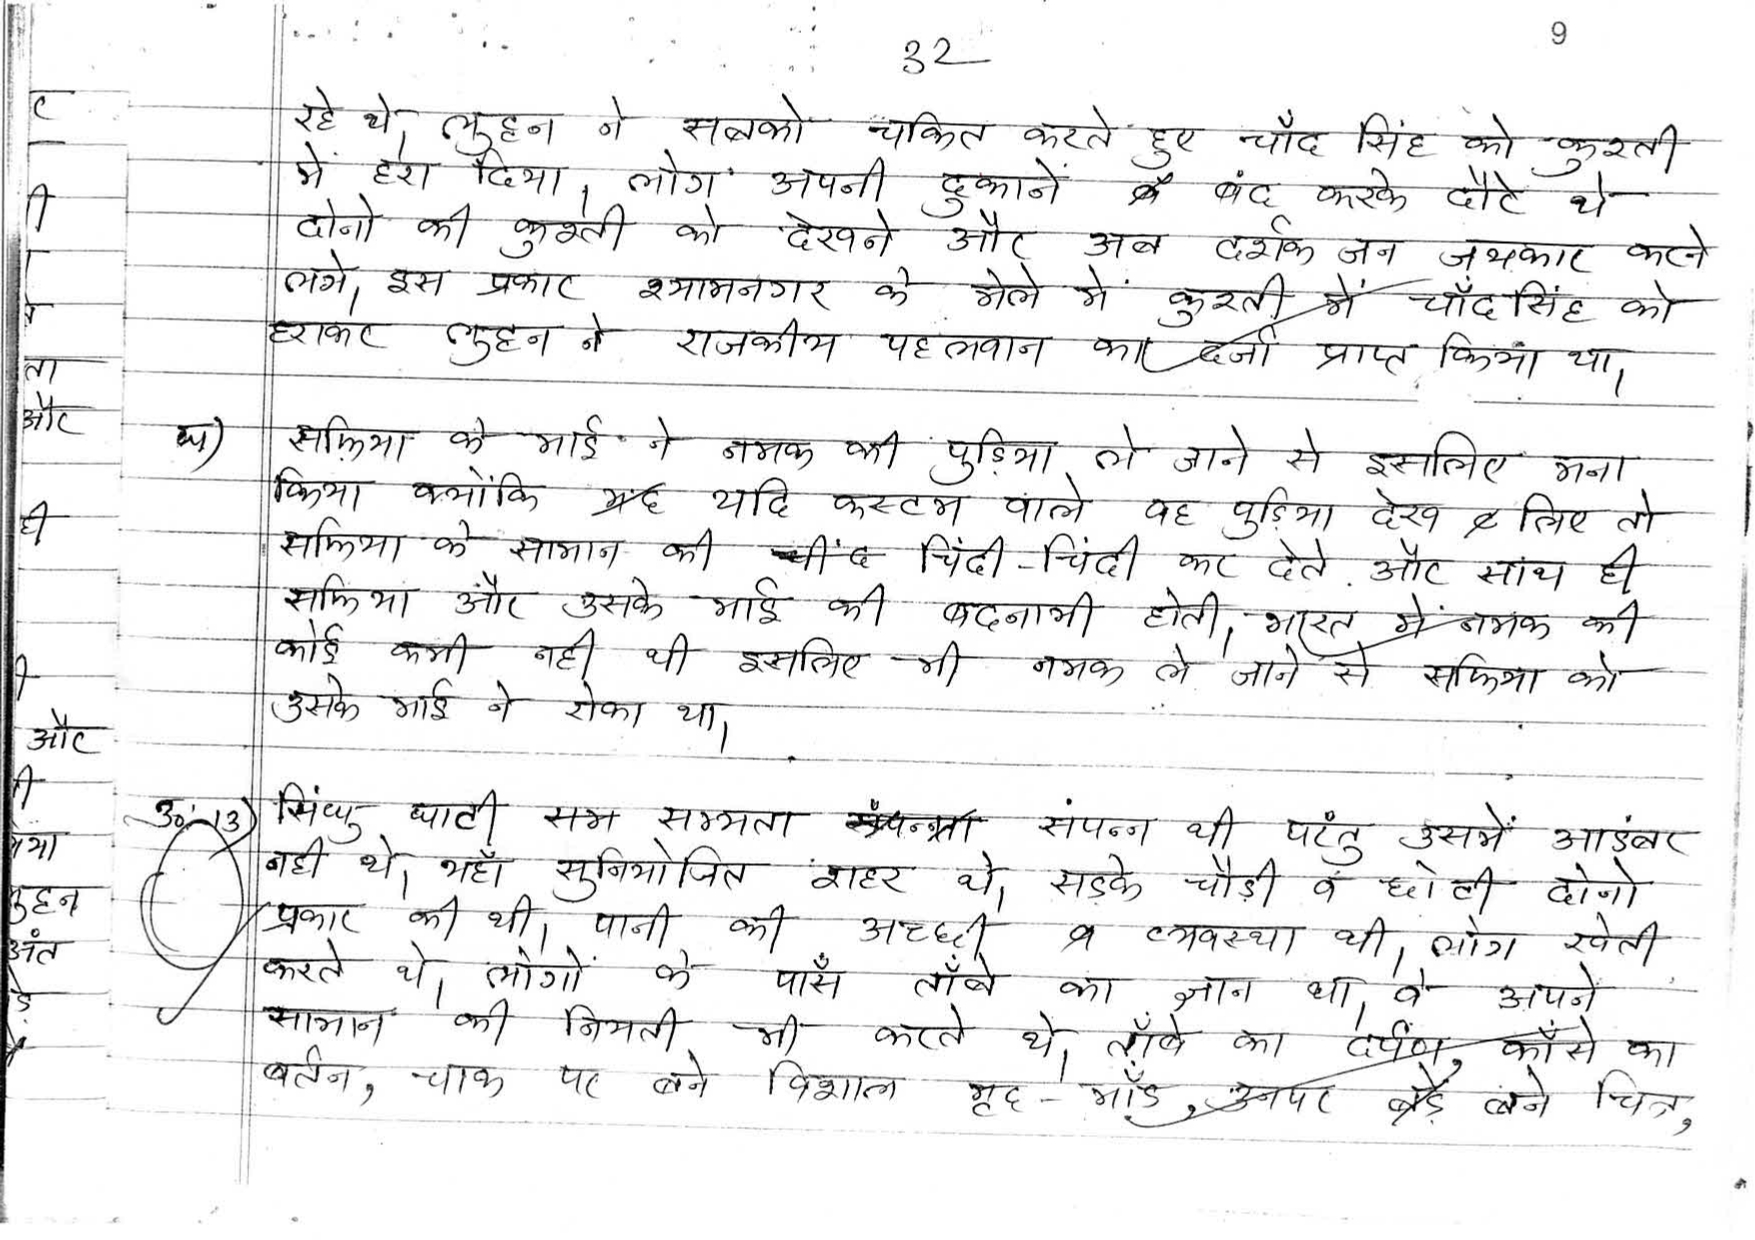 9
32
रहे थे। लुट्टन ने सबको चकित करते हुए चाँद सिंह को कुश्ती
में हरा दिया। लोग अपनी दुकानें बंद करके दौटे थे
दोनो की कुश्ती को देखने और अब दर्शक जन जयकार करने
लगे। इस प्रकार श्यामनगर के मेले में कुश्ती में चाँदसिंह को
हराकर लुट्टन ने राजकीय पहलवान का दर्जा प्राप्त किया था।
घ) सफ़िया के भाई ने नमक की पुड़िया ले जाने से इसलिए मना
किया क्योंकि यदि कस्टम वाले वह पुड़िया देख लिए तो
सफिया के सामान की चिंदी-चिंदी कर देते और साथ ही
सफिया और उसके भाई की बदनामी होती। भारत में नमक की
कोई कमी नही थी इसलिए भी नमक ले जाने से सफिया को
उसके भाई ने रोका था।
उ॰13) सिंधु घाटी सभ सभ्यता संपन्न थी परंतु उसमें आडंबर
नही थे। यहाँ सुनियोजित शहर थे। सड़के चौड़ी व छोटी दोनो
प्रकार की थी। पानी की अच्छी व्यवस्था थी। लोग खेती
करते थे। लोगों के पास ताँबे का ज्ञान था। वे अपने
सामान की निमती भी करते थे। ताँबे का दर्पण, काँसे का
बर्तन, चाक पर बने विशाल मृद-भाँड, उनपर बने चित्र,
और
ही
और
लुट्टन
अंत